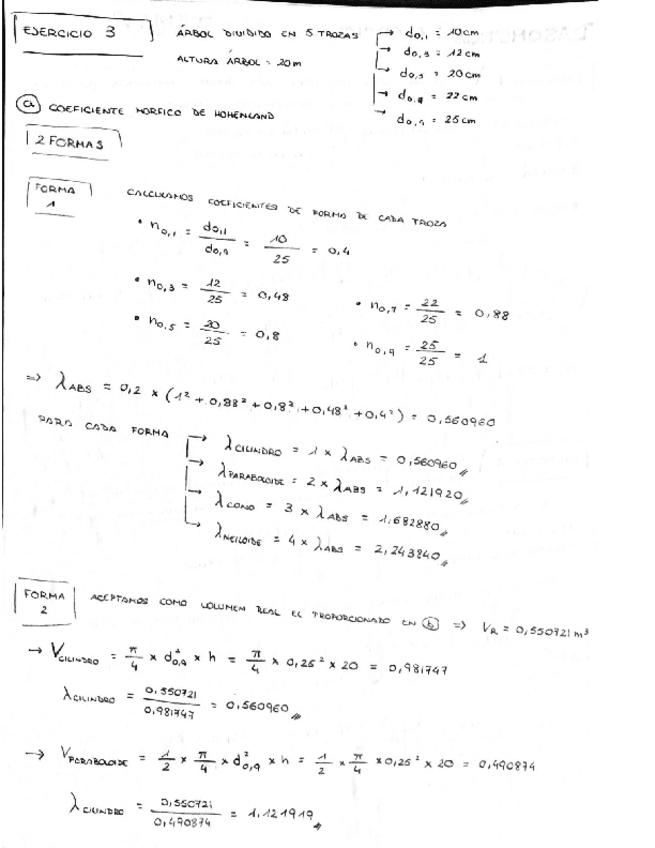 EJERCICIO 3
ÁRBOL DIVIDIDO EN 5 TROZAS → d0,1 = 10cm
→ d0,3 = 12cm
ALTURA ÁRBOL = 20m → d0,5 = 20cm
→ d0,9 = 22cm
→ d0,9 = 25cm
ⓐ COEFICIENTE MORFICO DE HOHENLAND
2 FORMAS
FORMA 1
CALCULAMOS COEFICIENTES DE FORMA DE CADA TROZA
• n0,1 = d0,1 / d0,9 = 10/25 = 0,4
• n0,3 = 12/25 = 0,48 • n0,7 = 22/25 = 0,88
• n0,5 = 20/25 = 0,8 • n0,9 = 25/25 = 1
⇒ λABS = 0,2 × (1² + 0,88² + 0,8² + 0,48² + 0,4²) = 0,560960
PARA CADA FORMA → λCILINDRO = 1 × λABS = 0,560960
→ λPARABOLOIDE = 2 × λABS = 1,121920
→ λCONO = 3 × λABS = 1,682880
→ λNEILOIDE = 4 × λABS = 2,243840
FORMA 2
ACEPTAMOS COMO VOLUMEN REAL EL PROPORCIONADO EN ⓑ ⇒ VR = 0,550721 m³
→ VCILINDRO = π/4 × d²0,9 × h = π/4 × 0,25² × 20 = 0,981747
λCILINDRO = 0,550721 / 0,981747 = 0,560960
→ VPARABOLOIDE = 1/2 × π/4 × d²0,9 × h = 1/2 × π/4 × 0,25² × 20 = 0,490874
λCILINDRO = 0,550721 / 0,490874 = 1,121919